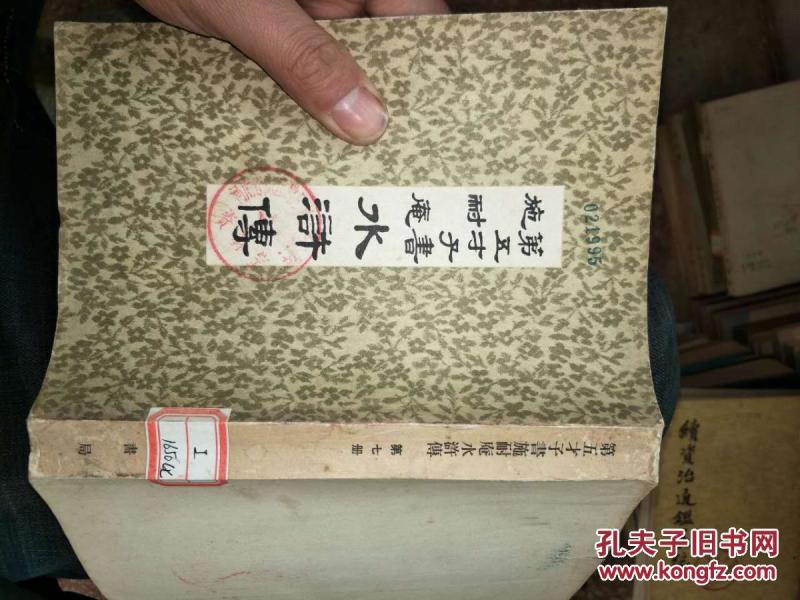 第五才子書
施耐庵
水滸傳
021995
第五才子書施耐庵水滸傳
第七冊
書局
I
續資治通鑑
孔夫子旧书网
www.kongfz.com